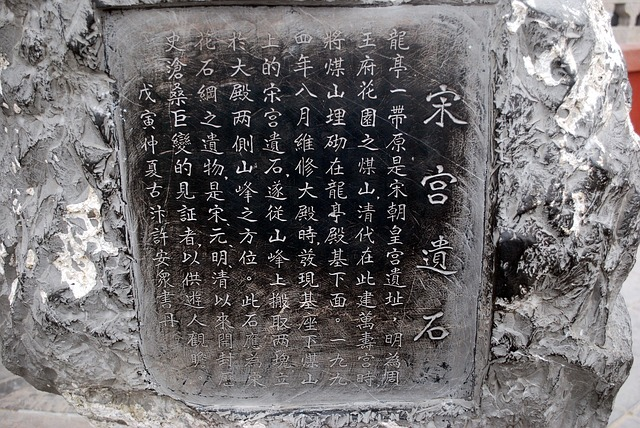 宋宮遺石
龍亭一帶原是宋朝皇宮遺址，明為周
王府花園之煤山，清代在此建萬壽宮時
將煤山埋砌在龍亭殿基下面。一九九
四年八月維修大殿時，發現基座下煤山
上的宋宮遺石，遂從山峰上搬取两塊立
於大殿两側山峰之方位。此石應為宋
花石綱之遺物，是宋、元、明、清以來開封歷
史滄桑巨變的見証者，以供遊人觀瞻
戊寅仲夏古汴許安眾書丹